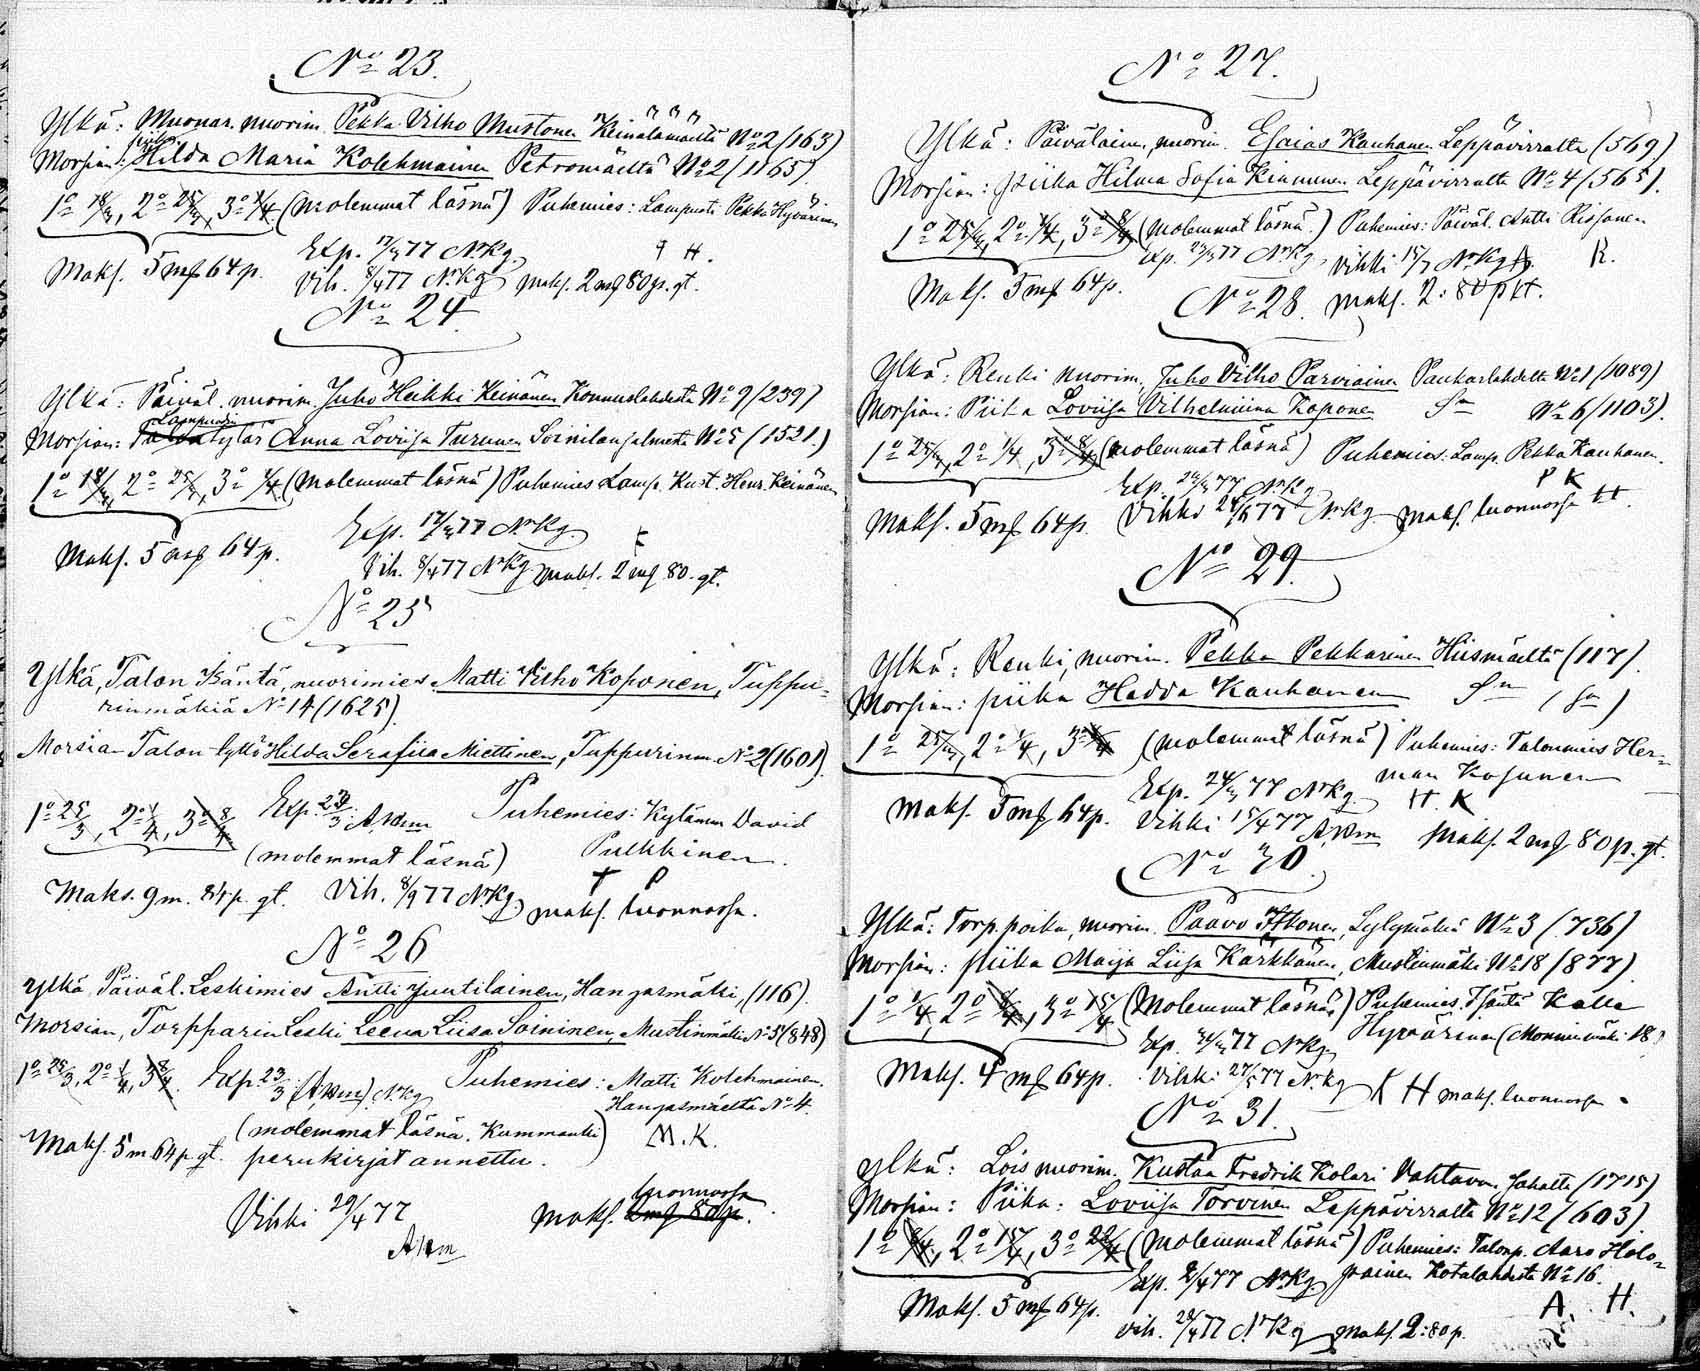 No 23.
Ylkä: Muonar. nuorim. Pekka Vilho Mustonen Keinälämäeltä No 2/163)
piika
Morsian: Hilda Maria Kolehmainen Petromäeltä No 2 (1165).
1o 18/3, 2o 25/3, 3o 1/4 (molemmat läsnä) Puhemies: Lampuoti Pekka Hyvärinen
Maks. 5 mk 64 p. Exp. 17/3 77 NrKg. P H.
Vih. 8/4 77 NrKg maks. 2 mk 80 p. gt.
No 24.
Ylkä: Päiväl. nuorim. Juho Heikki Keinänen Konnuslahdesta No 9/239)
Lampuodin
Morsian: Talon tytär Anna Loviisa Turunen Soinilansalmesta No 5 (1521.)
1o 18/3, 2o 25/3, 3o 1/4 (molemmat läsnä) Puhemies Lamp. Kust. Henr. Keinänen
Maks. 5 mk 64 p. Exp. 17/3 77 NrKg. K
Vih. 8/4 77 NrKg. maks. 2 mk 80. gt.
No 25
Ylkä, Talon Isäntä, nuorimies Matti Vilho Koponen, Tuppu-
rinmäkiä No 14 (1625).
Morsian Talon tyttö Hilda Serafiia Miettinen, Tuppurinm. No 2 (1601).
1o 25/3, 2o 1/4, 3o 8/4 Exp. 23/3. Puhemies: Kylämm David
(molemmat läsnä) Pulkkinen.
T P
Maks. 9 m. 84 p. gt. Vih. 8/9 77 NrKg. maks. luonnossa.
No 26
Ylkä Päiväl. Leskimies Antti Juutilainen, Hangasmäki, (116).
Morsian, Torpparin Leski Leena Liisa Soininen, Mustinmäki No 31 (848)
1o 25/3, 2o 1/4, 3o 8/4. Exp 23/3 NrKg Puhemies: Matti Kolehmainen.
Hangasmäeltä No 4.
(molemmat läsnä. Kummanki) M. K.
Maks. 5 m 64 p. gt. perukirjat annettu.
luonnossa
Vihki 29/4 77 maks. 2 mk 80 p.
No 27.
Ylkä: Päiväläinen, nuorim. Esaias Kauhanen Leppävirralta (569.)
Morsian: Piika Hilma Sofia Kinnunen Leppävirralta No 4 (565).
1o 25/3, 2o 1/4, 3o 8/4 (molemmat läsnä.) Puhemies: Päiväl. Antti Rissanen
Exp. 23/3 77 NrKg. Vihki 15/7 NrKg R.
Maks. 5 mk 64 p. maks. 2:80 p kt.
No 28.
Ylkä: Renki nuorim. Juho Vilho Parviainen Paukarlahdelta No 1 (1089)
Morsian: Piika Loviisa Vilhelmiina Koponen Sn No 6 (1103).
1o 25/3, 2o 1/4, 3o 8/4 (molemmat läsnä) Puhemies: Lamp. Pekka Kauhanen.
Exp. 24/3 77 NrKg P K
Maks. 5 mk 64 p. Vihki 24/6 77 NrKg. maks. luonnossa H.
No 29.
Ylkä: Renki, nuorim. Pekka Pekkarinen Hiismäeltä (117).
Morsian: piika Hedda Kauhanen Sn (Sn)
1o 25/3, 2o 1/4, 3o 8/4 (molemmat läsnä) Puhemies: Talonmies Her-
man Kosunen
Exp. 24/3 77 NrKg. H. K
Maks. 5 mk 64 p. Vihki 15/4 77 maks. 2 mk 80 p. gt.
No 30.
Ylkä: Torp. poika, nuorim. Paavo Itkonen, Sylymäkiä No 3 (736)
Morsian: piika Maija Liisa Kärkkänen, Mustinmäki No 18 (877).
1o 1/4, 2o 8/4, 3o 15/4 (Molemmat läsnä) Puhemies. Isäntä Kalle
Hyvärinen (Monninmäki 18)
Exp. 31/3 77 NrKg.
Maks. 4 mk 64 p. Vihki 27/5 77 NrKg K H maks. luonnossa.
No 31.
Ylkä: Lois nuorim. Kustaa Fredrik Kolari Vahtavan Jaholta (1715)
Morsian: Piika: Loviisa Torvinen Leppävirralta No 12 (603).
1o 8/4, 2o 15/4, 3o 22/4 (molemmat läsnä) Puhemies: Talonp. Aaro Holo-
painen Kotalahdesta No 16.
Exp. 2/4 77 NrKg. A. H.
Maks. 5 mk 64 p. Vih. 28/4 77 NrKg maks. 2:80 p.